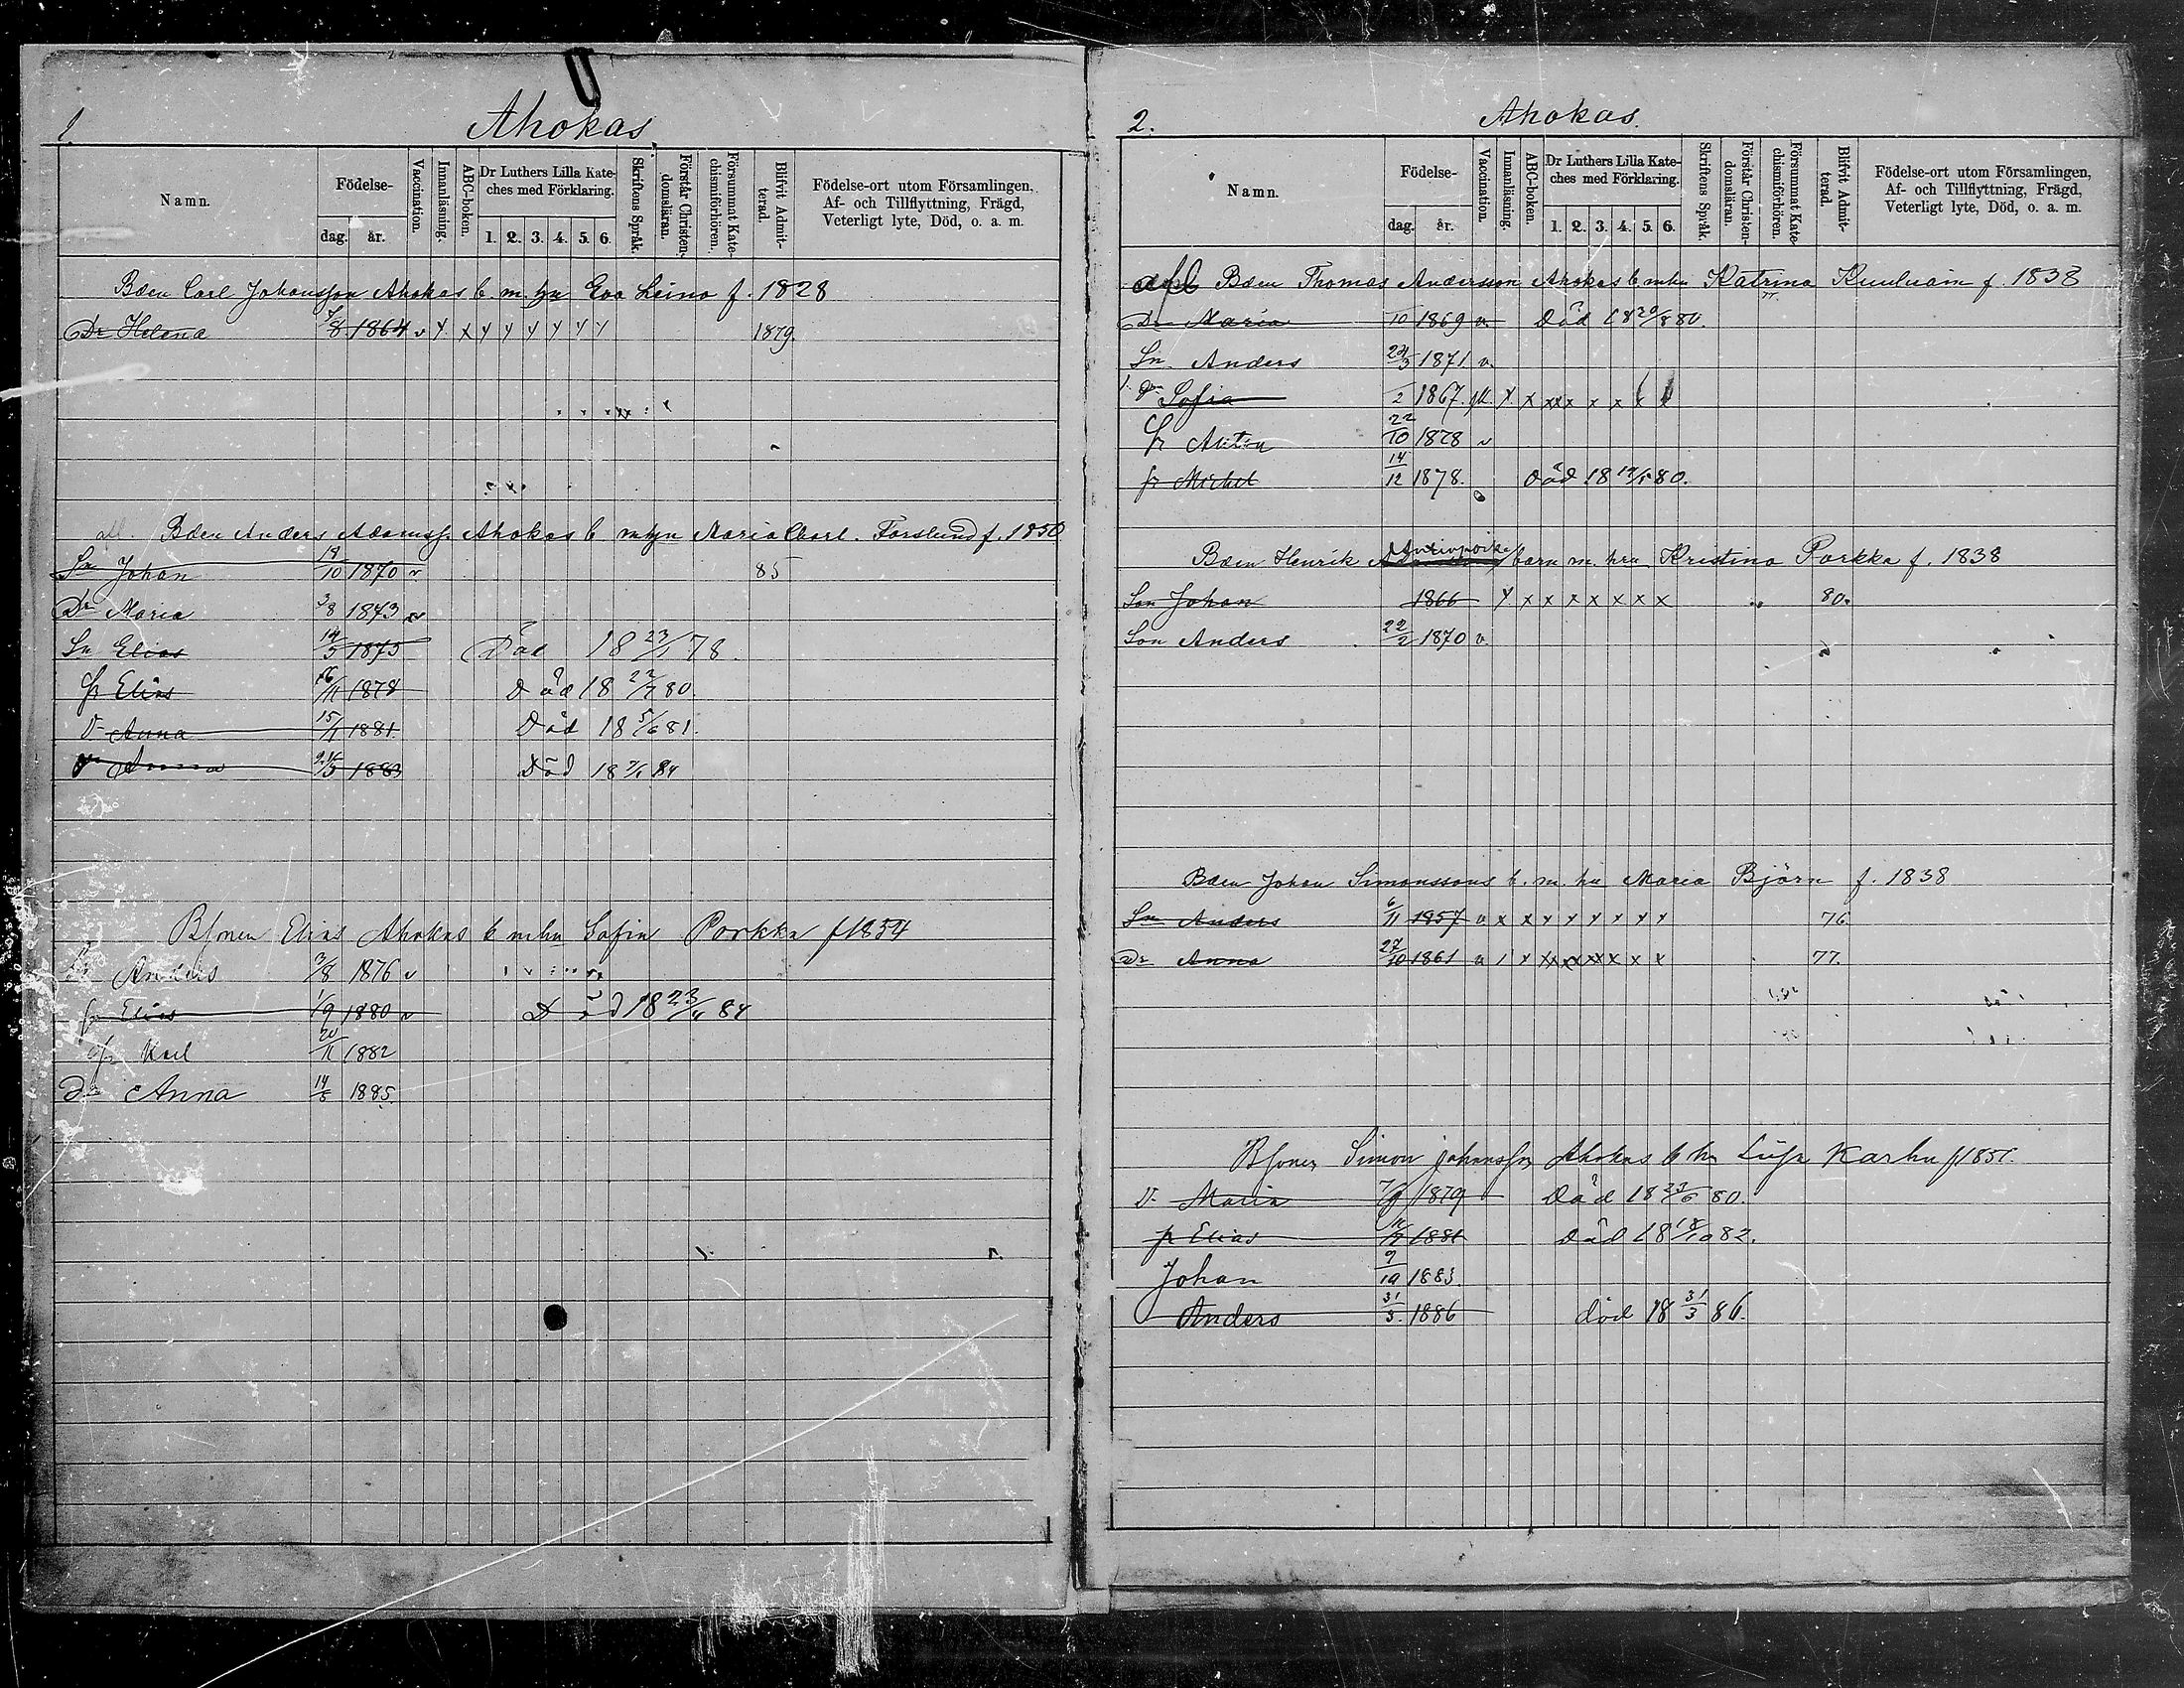 1.
Ahokas
Namn.
Födelse-
dag. år.
Vaccination.
Innanläsning.
ABC-boken.
Dr Luthers Lilla Kate-
ches med Förklaring.
1. 2. 3. 4. 5. 6.
Skriftens Språk.
Förstår Christen-
domsläran.
Försummat Kate-
chismiförhören.
Blifvit Admit-
terad.
Födelse-ort utom Församlingen,
Af- och Tillflyttning, Frägd,
Veterligt lyte, Död, o. a. m.
Bden Carl Johansson Ahokas b. m. hu Eva Leino f. 1828
Dr Helena /8 1864 v y x y y y y y y 1879.
Bden Anders Adamss. Ahokas b mhu Maria Charl. Forslund f. 1850
Sn Johan /10 1870 v 85
Dr Maria 3/8 1873 v
Sn Elias 14/5 1875 Död 18 23/1 78.
sn Elias 16/11 1878 Död 18 22/7 80.
D Anna 15/1 1881. Död 18 5/6 81.
Dr Anna 24/3 1883 Död 18 7/1 84
Bsonen Elias Ahokas b mhu Sofia Porkka f 1854
Sn Anders 3/8 1876 v
sn Elias 1/9 1880 v Död 18 23/4 84
sn Karl 20/11 1882
Dr Anna 14/5 1885.
2.
Ahokas.
Namn.
Födelse-
dag. år.
Vaccination.
Innanläsning.
ABC-boken.
Dr Luthers Lilla Kate-
ches med Förklaring.
1. 2. 3. 4. 5. 6.
Skriftens Språk.
Förstår Christen-
domsläran.
Försummat Kate-
chismiförhören.
Blifvit Admit-
terad.
Födelse-ort utom Församlingen,
Af- och Tillflyttning, Frägd,
Veterligt lyte, Död, o. a. m.
afl Bden Thomas Andersson Ahokas b mhu Katrina f. 1838
Dr Maria /10 1869 v. Död 18 20/8 80.
Sn Anders /3 1871 v.
1. Dr Sofia /2 1867. y x x x x x x x x
sn Antin 22/10 1878 v
sn Michel 14/12 1878. Död 18 80.
Bden Henrik barn m. hu Kristina Porkka f. 1838
Son Johan 1866 y x x x x x x x 80.
Son Anders 22/2 1870 v.
Bden Johan Simonssons b. m. hu Maria Björn f. 1838
Sn Anders 6/11 1857 v x x y y y y y y 76.
Dr Anna 27/10 1861 v 1 y x x x x x x x x 77.
Bsonen Simon Johansson Ahokas b hu Liisa Karhu f 185
D Maria 7/9 1879 Död 18 23/6 80.
sn Elias 1881 Död 18 18/10 82.
Johan 9/10 1883.
Anders 31/3. 1886 död 18 31/3 86.